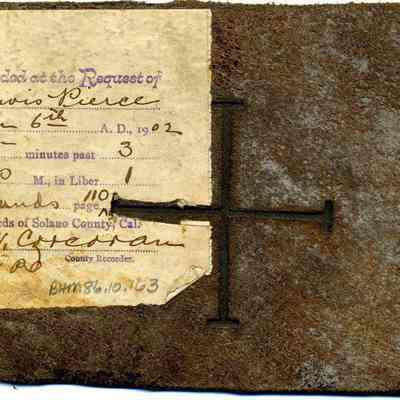 ded at the Request of
wis Pierce
6th A. D., 1902
minutes past 3
M., in Liber 1
ands page 110
rds of Solano County, Cal.
Corcoran
County Recorder.
BHM86.10.163